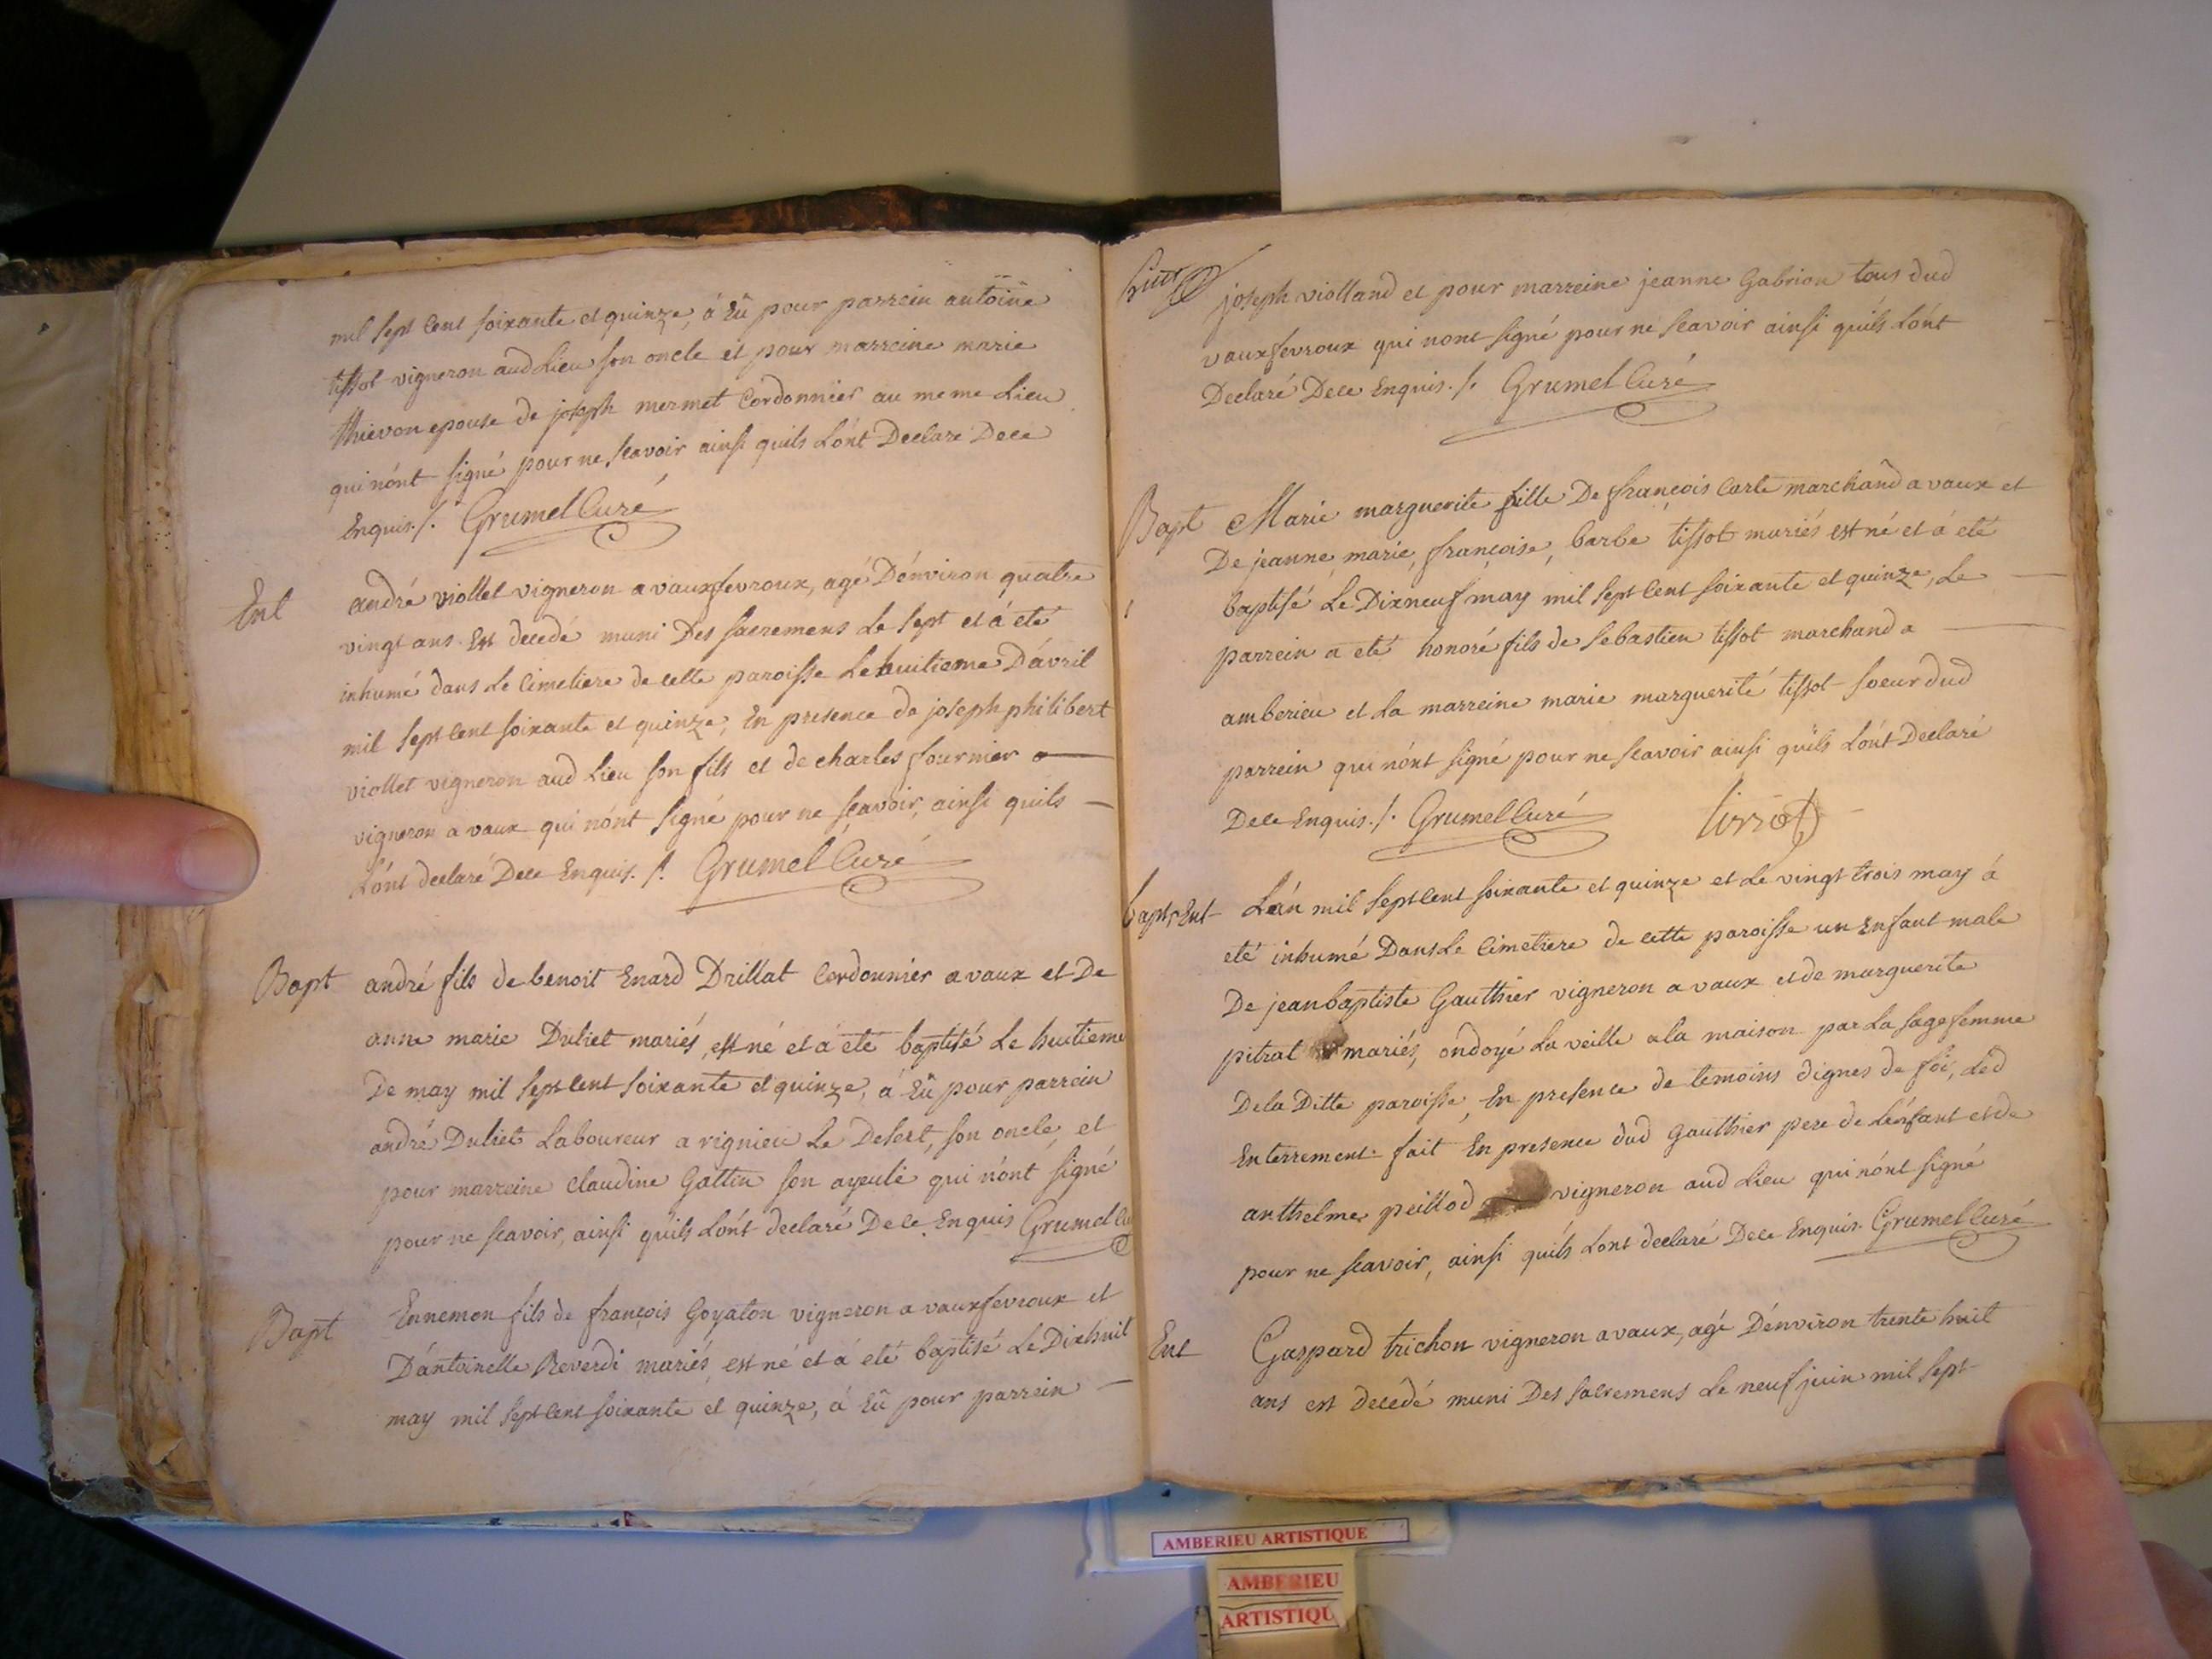 mil sept cent soixante et quinze, á Eû pour parrein antoine
tissot vigneron aud Lieu son oncle et pour marreine marie
thievon epouse de joseph mermet Cordonnier au meme Lieu
qui nónt signé pour ne scavoir ainsi quils Lónt Declaré Dece
Enquis ./. Grumel Curé
Ent
andré viollet vigneron a vauxfevroux, agé D'énviron quatre
vingt ans Est decedé muni Des sacremens Le sept et á eté
inhumé dans Le Cimetiere de cette paroisse Le huitieme D'ávril
mil sept cent soixante et quinze, En presence de joseph philibert
viollet vigneron aud Lieu son fils et de charles fournier
vigneron a vaux qui nónt signé pour ne scavoir, ainsi quils
Lónt declaré Dece Enquis ./. Grumel Curé
Bapt
andré fils de benoit Enard Drillat Cordonnier a vaux et De
anne marie Duliet mariés, est né et á eté baptisé Le huitieme
De may mil sept cent soixante et quinze, á Eû pour parrein
andré Duliet Laboureur a rignieu Le Desert, son oncle, et
pour marreine claudine Gottin son ayeule qui nónt signé
pour ne scavoir, ainsi quils Lónt declaré Dece Enquis Grumel Cu
Bapt
Ennemon fils de françois Goyaton vigneron a vauxfevroux et
D'ántoinette Reverdi mariés, est né et á eté baptisé Le Dixhuit
may mil sept cent soixante et quinze, á Eû pour parrein
joseph violland et pour marreine jeanne Gabrion tous dud
vauxfevroux qui nont signé pour ne scavoir ainsi quils Lónt
Declaré Dece Enquis ./. Grumel Curé
Bapt
Marie marguerite fille De françois Carle marchand a vaux et
De jeanne, marie, françoise, barbe tissot mariés est né et á eté
baptisé Le Dixneuf may mil sept cent soixante et quinze, Le
parrein a eté honoré fils de Sebastien tissot marchand a
amberieu et La marreine marie marguerite tissot soeur dud
parrein qui nónt signé pour ne scavoir ainsi quils Lónt Declaré
Dece Enquis ./. Grumel Curé tissot
bapt, Ent
Lán mil sept cent soixante et quinze et Le vingt trois may á
eté inhumé Dans Le Cimetiere de cette paroisse un Enfant male
De jean baptiste Gauthier vigneron a vaux et de marguerite
pitrat mariés, ondoyé La veille a la maison par La sage femme
De la Ditte paroisse, En presence de temoins dignes de foi, Led
Enterrement fait En presence dud Gauthier pere de Lénfant et de
anthelme peillod vigneron aud Lieu qui nónt signé
pour ne scavoir, ainsi quils Lont declaré Dece Enquis Grumel Curé
Ent
Gaspard trichon vigneron a vaux, agé D'énviron trente huit
ans est Decedé muni Des sacremens Le neuf juin mil sept
AMBERIEU ARTISTIQUE
AMBERIEU
ARTISTIQU